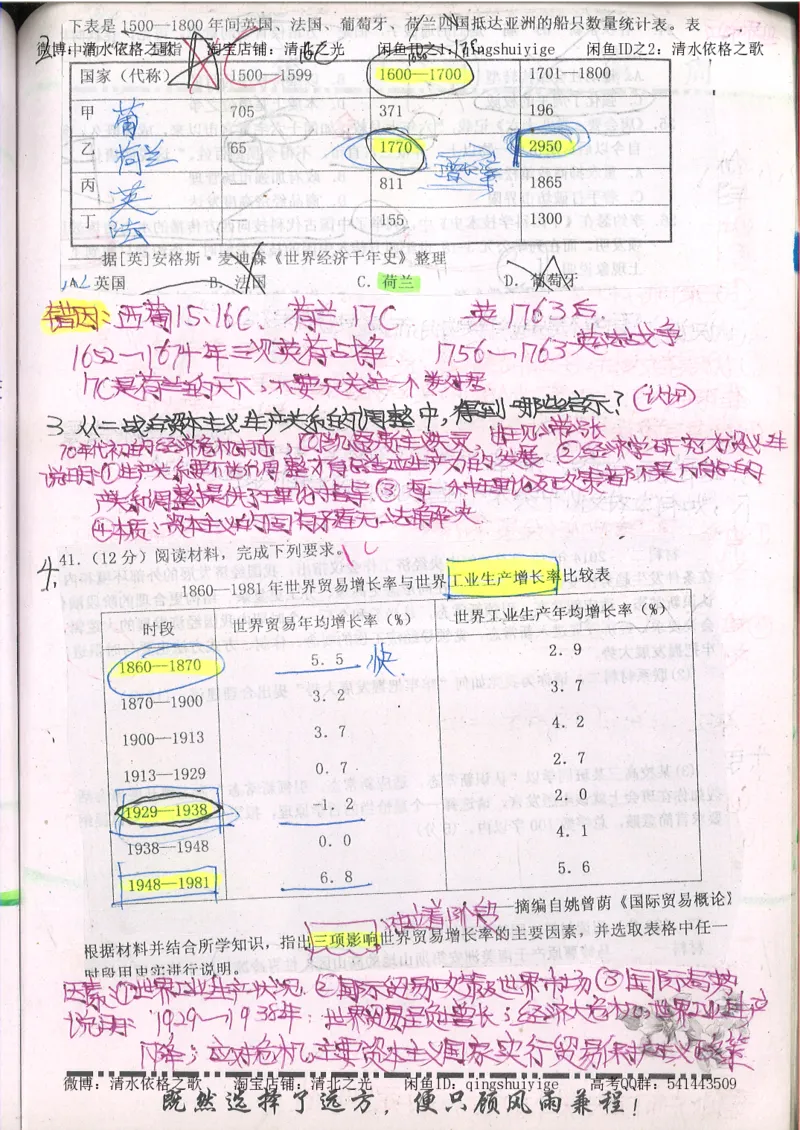 下表是 1500—1800 年间英国、法国、葡萄牙、荷兰四国抵达亚洲的船只数量统计表。表
微博:清水依格之歌 淘宝店铺:清北之光 闲鱼ID之1:qingshuiyige 闲鱼ID之2:清水依格之歌
国家（代称） 1500—1599 1600—1700 1701—1800
甲 705 371 196
葡
乙 65 1770 2950
荷兰 增长率
丙 — 811 1865
英
丁 — 155 1300
法
——据[英]安格斯·麦迪森《世界经济千年史》整理
A. 英国 B. 法国 C. 荷兰 D. 葡萄牙
错因: 西葡15、16C、 荷兰17C 英1763后
1652—1674年三次英荷战争 1756—1763英法战争
17C是荷兰的天下,不要只关注一个数据
3 从二战后资本主义生产关系的调整中,得到哪些启示?
说明:①生产关系要不断调整才有可能适应生产力的发展
④本质:资本主义的固有矛盾无法解决
4.
41.（12 分）阅读材料，完成下列要求。
1860—1981 年世界贸易增长率与世界工业生产增长率比较表
时段 世界贸易年均增长率（%） 世界工业生产年均增长率（%）
1860—1870 5.5 快 2.9
1870—1900 3.2 3.7
1900—1913 3.7 4.2
1913—1929 0.7 2.7
1929—1938 -1.2 2.0
1938—1948 0.0 4.1
1948—1981 6.8 5.6
——摘编自姚曾荫《国际贸易概论》
根据材料并结合所学知识，指出三项影响世界贸易增长率的主要因素，并选取表格中任一
时段用史实进行说明。
因素:①世界工业生产状况 ②国际贸易政策及世界市场 ③国际局势
说明: 1929—1938年:世界贸易呈负增长;经济大危机,世界工业生产
下降;应对危机,主要资本主义国家实行贸易保护主义政策
微博：清水依格之歌 淘宝店铺：清北之光 闲鱼ID：qingshuiyige 高考QQ群：541443509
既然选择了远方，便只顾风雨兼程！